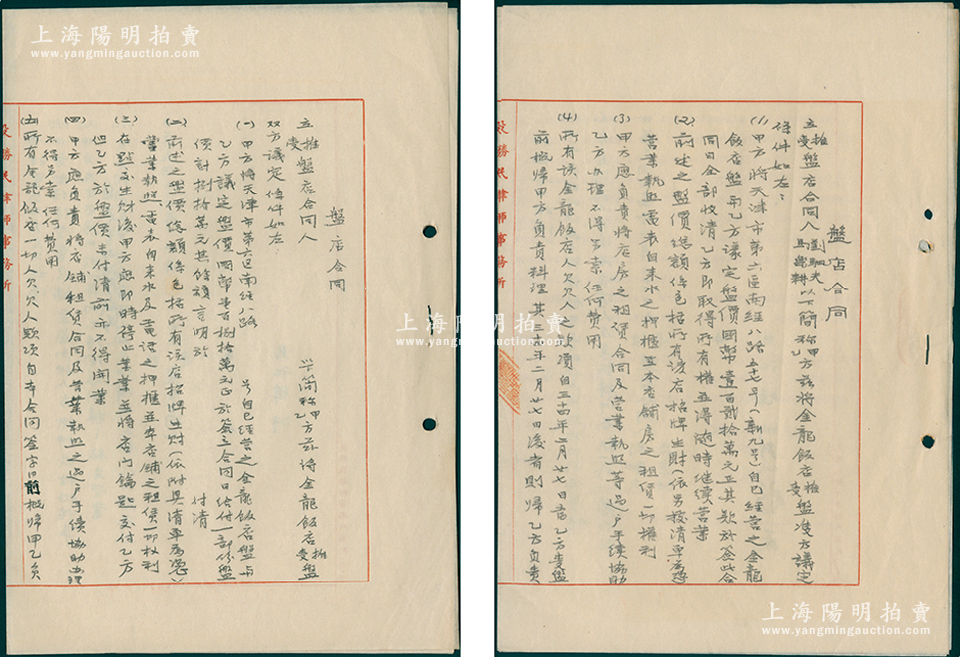 上海陽明拍賣
www.yangmingauction.com
盤店合同
立推受盤店合同人
以簡稱甲乙方茲將金龍飯店推受盤
双方議定條件如左
(一) 甲方將天津市第六區南經八路 号自己經營之金龍飯店盤与
乙方議定盤價國幣壹百貳拾萬元正於簽立合同日給付一部份盤
價計捌拾萬元其餘額言明於 付清
(二) 前述之盤價總額係包括所有該店招牌生財(依附具清單為憑)
營業執照電表自來水及電話之押櫃並本店舖之租賃一切权利
(三) 在點交生財後甲方應即時停止業業並將店门鑰匙交付乙方
但乙方於盤價未付清前亦不得開業
(四) 甲方應负責將店舖租賃合同及营業執照之过户手續協助办理
不得另索任何費用
(五) 所有金龍飯店一切人欠欠人欵项自本合同簽字日前概歸甲乙负
殷勝民律師事務所
上海陽明拍賣
www.yangmingauction.com
盤店合同
立推受盤店合同人劉駟夫馬富耕以下簡稱甲乙方茲將金龍飯店推受盤双方議定
條件如左：
(1) 甲方將天津市第六區南經八路五十七号(新九号)自己經营之金龍
飯店盤与乙方議定盤價國幣壹百貳拾萬元正其欵於簽此合
同日全部收清乙方即取得所有權並得随時继續营業
(2) 前述之盤價總額係包括所有该店招牌生財(依另發清單為憑)
营業執照電表自來水之押櫃並本店舖房之租賃一切權利
(3) 甲方應负責將店房之租賃合同及营業執照等过户手续協助
乙方办理不得另索任何费用
(4) 所有該金龍飯店人欠欠人之欵項自三十四年二月廿七日由乙方受盤
前概歸甲方负責料理其三十年二月廿七日後者則歸乙方负責
殷勝民律師事務所
上海陽明拍賣
www.yangmingauction.com
上海陽明拍賣
www.yangmingauction.com